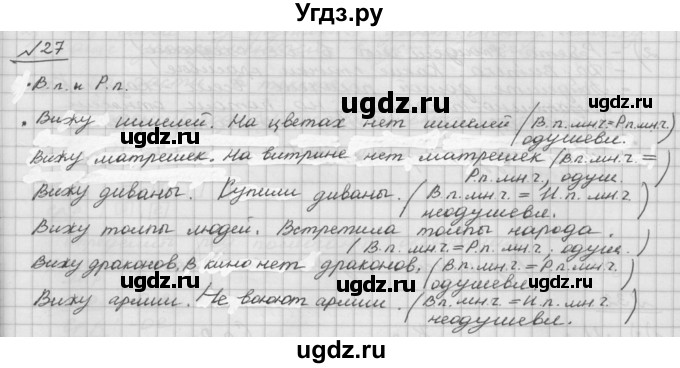 Угдз.ру
№27
• В.п. и Р.п.
• Вижу шмелей. На цветах нет шмелей (В.п.мн.ч=Р.п.мн.ч.) одушевл.
Вижу матрешек. На витрине нет матрешек (В.п.мн.ч. =
Р.п.мн.ч., одуш.)
Вижу диваны. Купили диваны. (В.п.мн.ч. = И.п.мн.ч. неодушевл.)
Вижу толпы людей. Встретила толпы народа.
(В.п.мн.ч.=Р.п.мн.ч. одуш.)
Вижу драконов. В кино нет драконов. (В.п.мн.ч.=Р.п.мн.ч. одушевл.)
Вижу армии. Не воюют армии. (В.п.мн.ч.=И.п.мн.ч. неодушевл.)
ugdz.ru
ugdz.ru
ugdz.ru
ugdz.ru
ugdz.ru
ugdz.ru
ugdz.ru
ugdz.ru
ugdz.ru
ugdz.ru
ugdz.ru